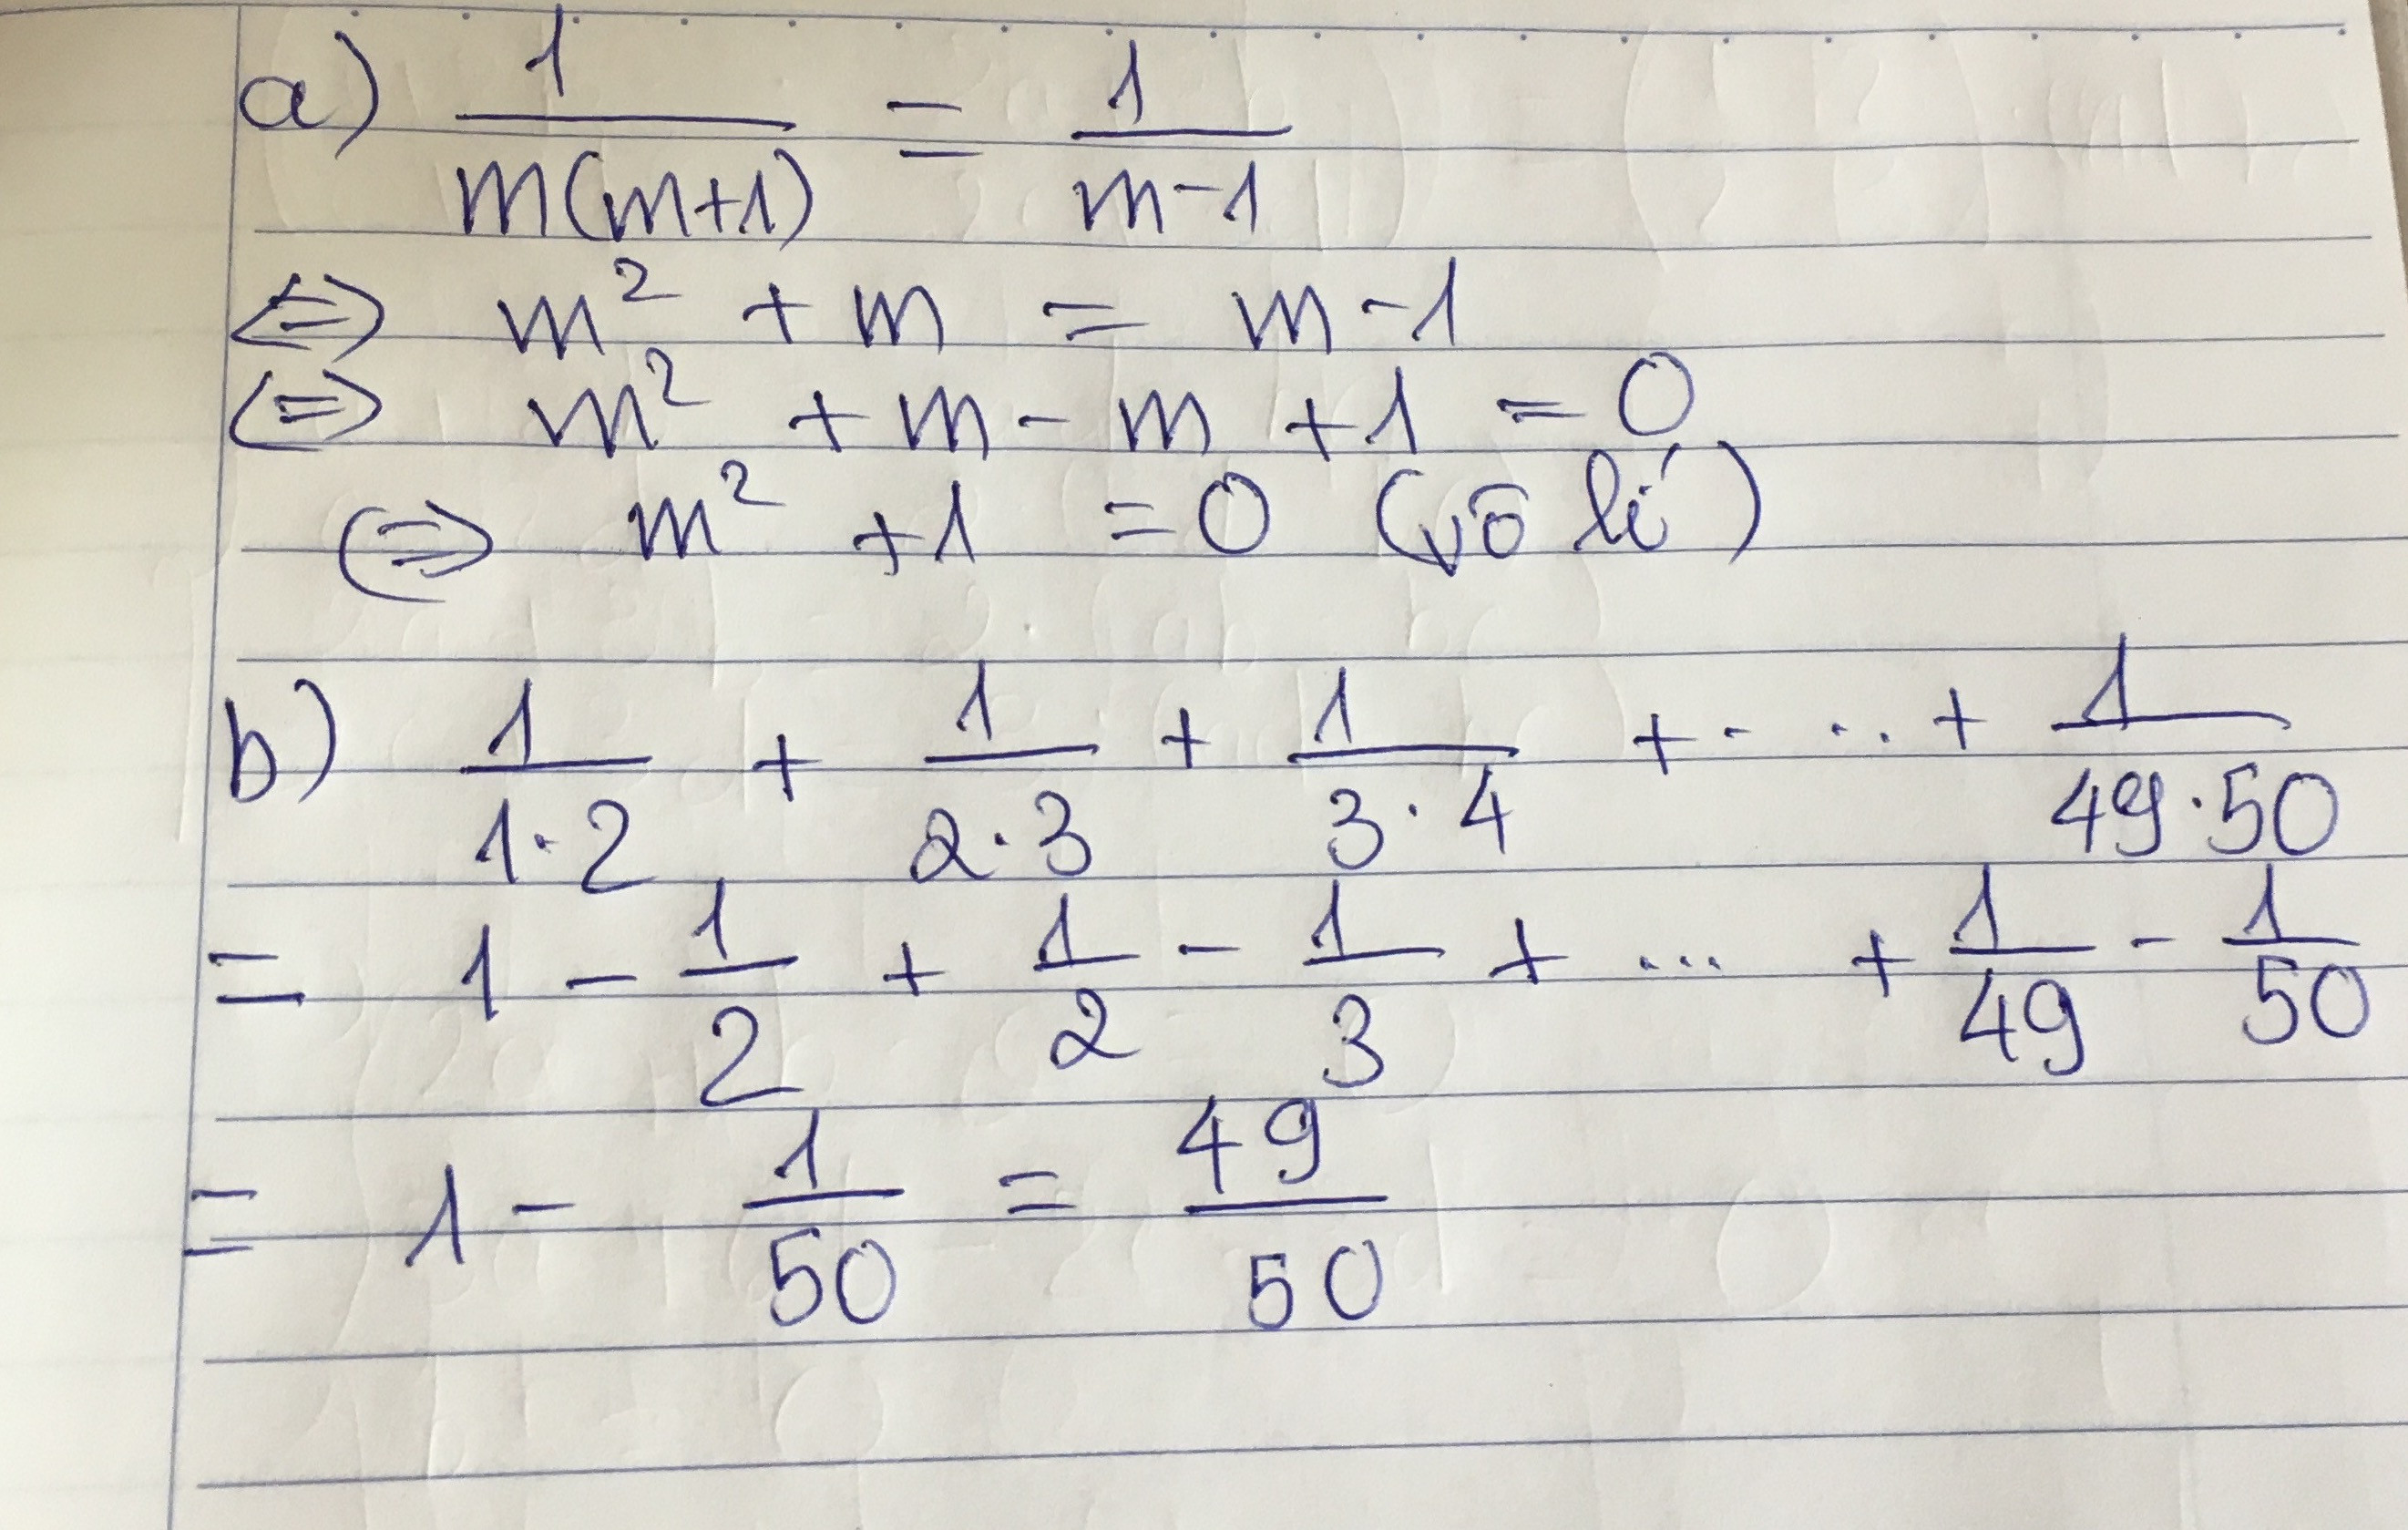 a) 1/(m(m+1)) = 1/(m-1)
<=> m² + m = m - 1
<=> m² + m - m + 1 = 0
<=> m² + 1 = 0 (vô lí)
b) 1/(1·2) + 1/(2·3) + 1/(3·4) + ... + 1/(49·50)
= 1 - 1/2 + 1/2 - 1/3 + ... + 1/49 - 1/50
= 1 - 1/50 = 49/50